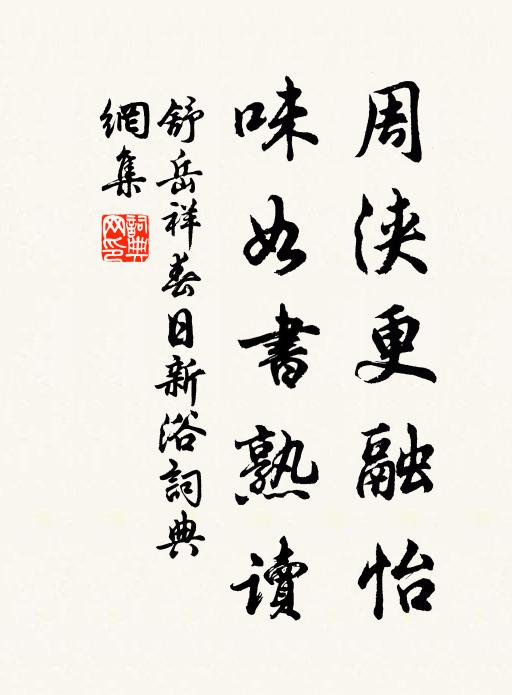 周浹更融怡
味如書熟讀
舒岳祥春日新浴詞典
網集
詞典
网印